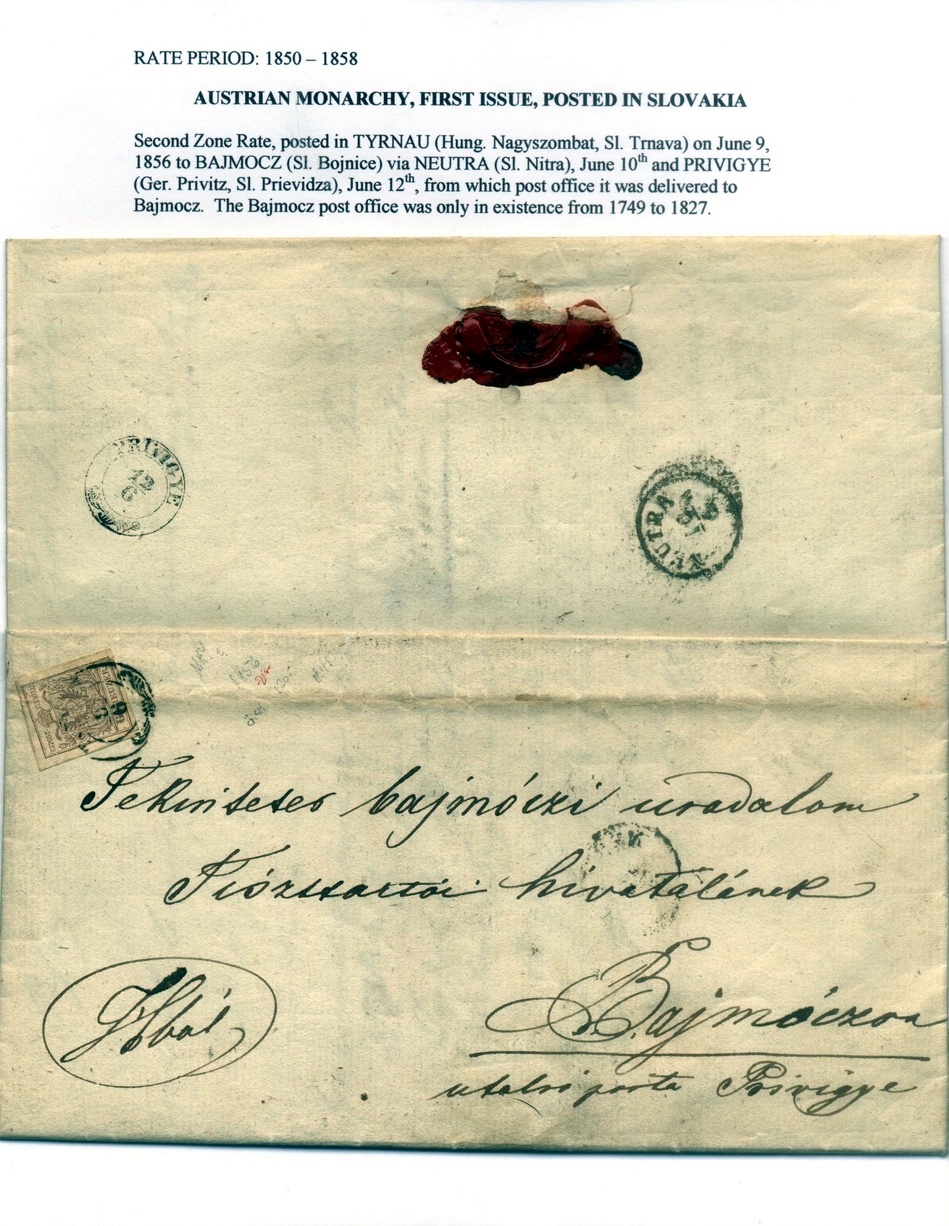 RATE PERIOD: 1850 – 1858
AUSTRIAN MONARCHY, FIRST ISSUE, POSTED IN SLOVAKIA
Second Zone Rate, posted in TYRNAU (Hung. Nagyszombat, Sl. Trnava) on June 9,
1856 to BAJMOCZ (Sl. Bojnice) via NEUTRA (Sl. Nitra), June 10th and PRIVIGYE
(Ger. Privitz, Sl. Prievidza), June 12th, from which post office it was delivered to
Bajmocz. The Bajmocz post office was only in existence from 1749 to 1827.
PRIVIGYE
12
6
NEUTRA
1856
Tekintetes bajmóczi uradalom
Tiszttartói hivatalának
Bajmóczon
utolsó posta Privigye